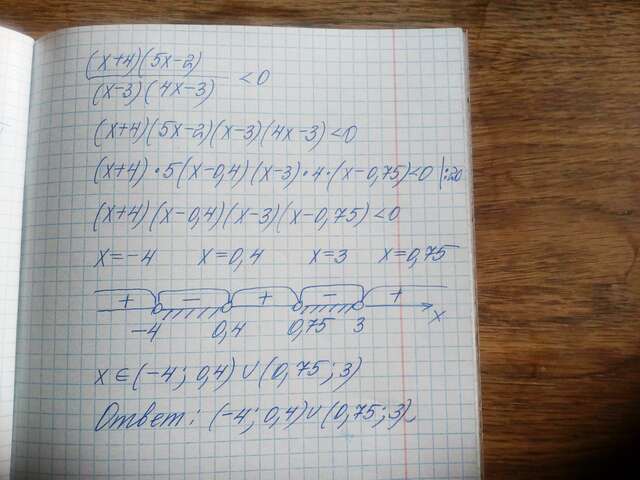 (x+4)(5x-2)
(x-3)(4x-3) <0
(x+4)(5x-2)(x-3)(4x-3)<0
(x+4)·5(x-0,4)(x-3)·4·(x-0,75)<0 |:20
(x+4)(x-0,4)(x-3)(x-0,75)<0
x=-4 x=0,4 x=3 x=0,75
+ - + - +
-4 0,4 0,75 3 x
x∈(-4; 0,4)∪(0,75; 3)
Ответ: (-4; 0,4)∪(0,75; 3).